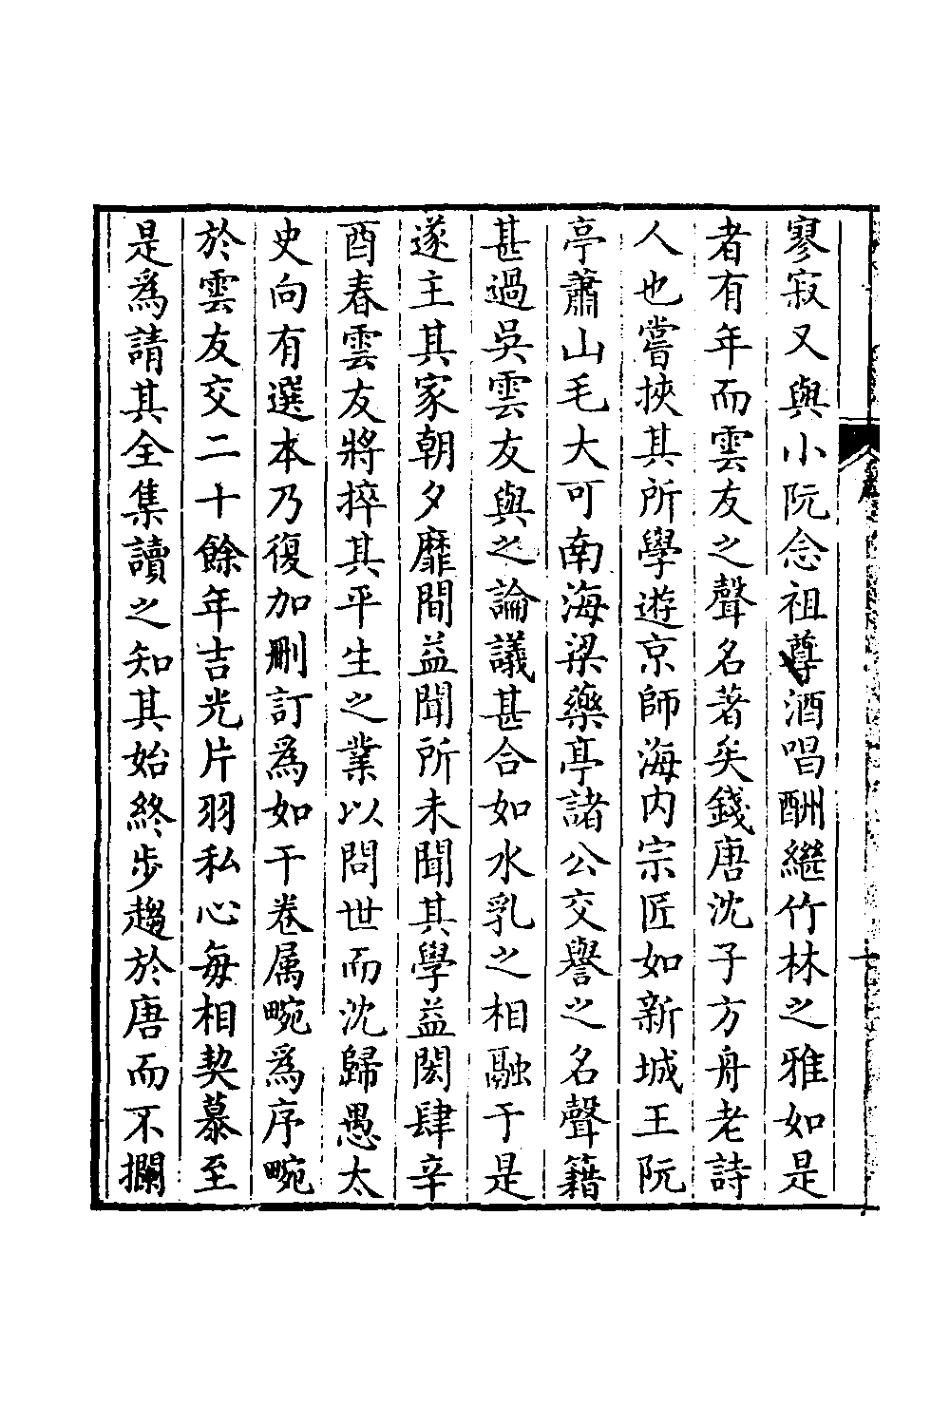 寥寂又與小阮念祖尊酒唱酬繼竹林之雅如是
者有年而雲友之聲名著矣錢唐沈子方舟老詩
人也嘗挾其所學遊京師海内宗匠如新城王阮
亭蕭山毛大可南海梁藥亭諸公交譽之名聲籍
甚過吳雲友與之論議甚合如水乳之相融于是
遂主其家朝夕靡間益聞所未聞其學益閎肆辛
酉春雲友將捽其平生之業以問世而沈歸愚太
史向有選本乃復加刪訂爲如干卷属畹爲序畹
於雲友交二十餘年吉光片羽私心每相契慕至
是爲請其全集讀之知其始終步趨於唐而不攔